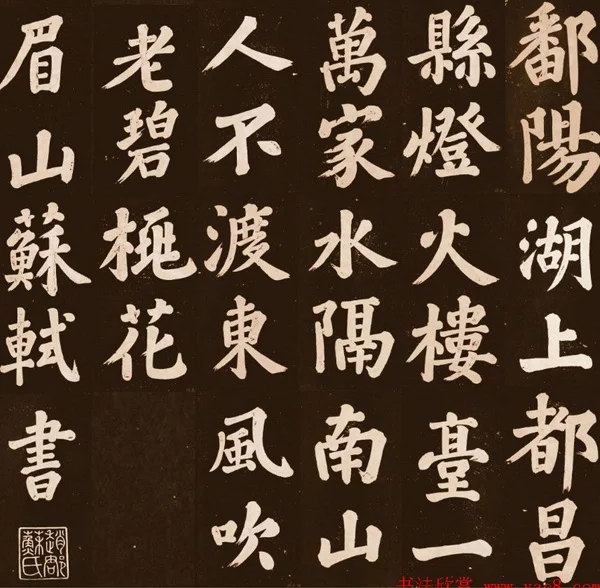 鄱陽湖上都昌
縣燈火樓臺一
萬家水隔南山
人不渡東風吹
老碧桃花
眉山蘇軾書
趙郡蘇氏
书法欣赏 www.yac8.com